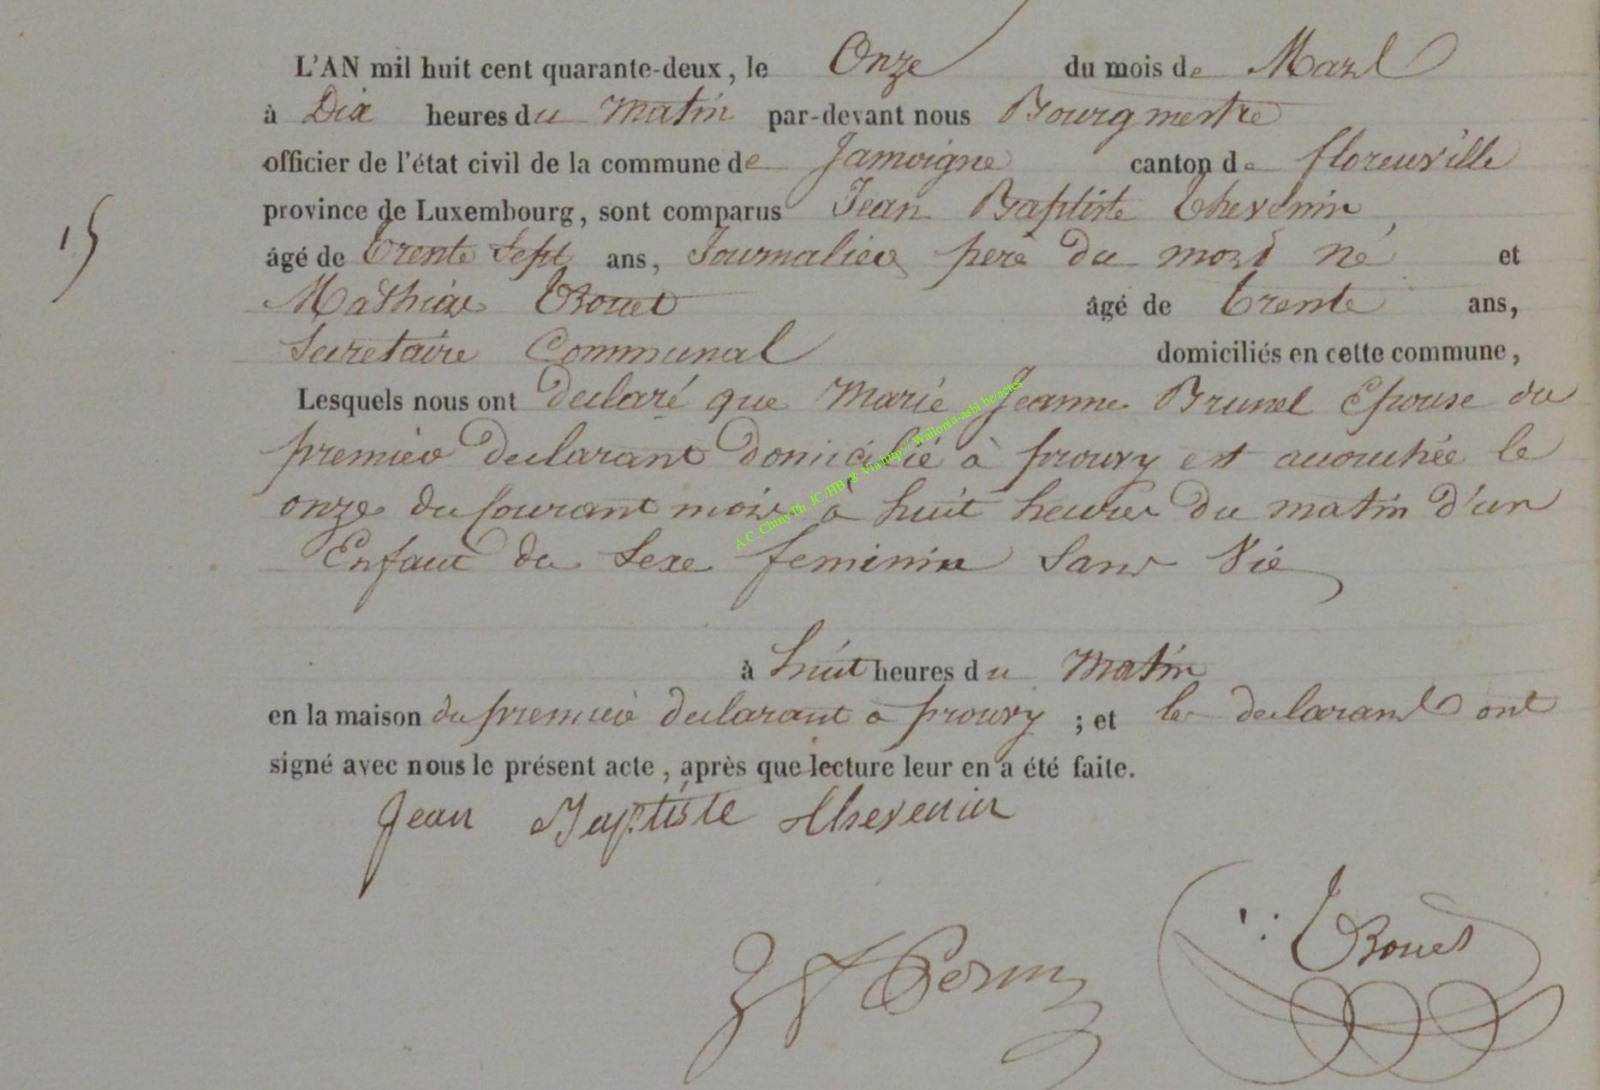 L'AN mil huit cent quarante-deux, le Onze du mois de Mars
à Dix heures du Matin par-devant nous Bourgmestre
officier de l'état civil de la commune de Jamoigne canton de florenville
province de Luxembourg, sont comparus Jean Baptiste Thevenin
15
âgé de Trente Sept ans, Journalier pere du mort né et
Mathieu age de Trente ans,
Secretaire Communal domiciliés en cette commune,
Lesquels nous ont declaré que Marie Jeanne Brunel Epouse du
premier declarant domicilié à prouvy est accouchée le
onze du Courant mois à huit heures du matin d'un
Enfant du Sexe feminin Sans Vie
à huit heures du Matin
en la maison du premier declarant a prouvy ; et les declarants ont
signé avec nous le présent acte, après que lecture leur en a été faite.
Jean Baptiste thevenin